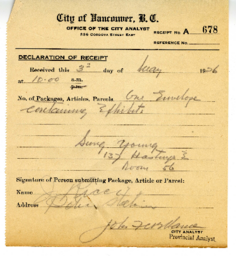 City of Vancouver, B.C.
OFFICE OF THE CITY ANALYST
RECEIPT No. A 678
REFERENCE No.
DECLARATION OF RECEIPT
Received this 3rd day of 1926
at 10-00 a.m.
p.m.
No. of Packages, Articles, Parcels One Envelope
containing Exhibits
Sung Young
137 Hastings E
Room 56
Signature of Person submitting Package, Article or Parcel:
Name
Address
CITY ANALYST
Provincial Analyst.